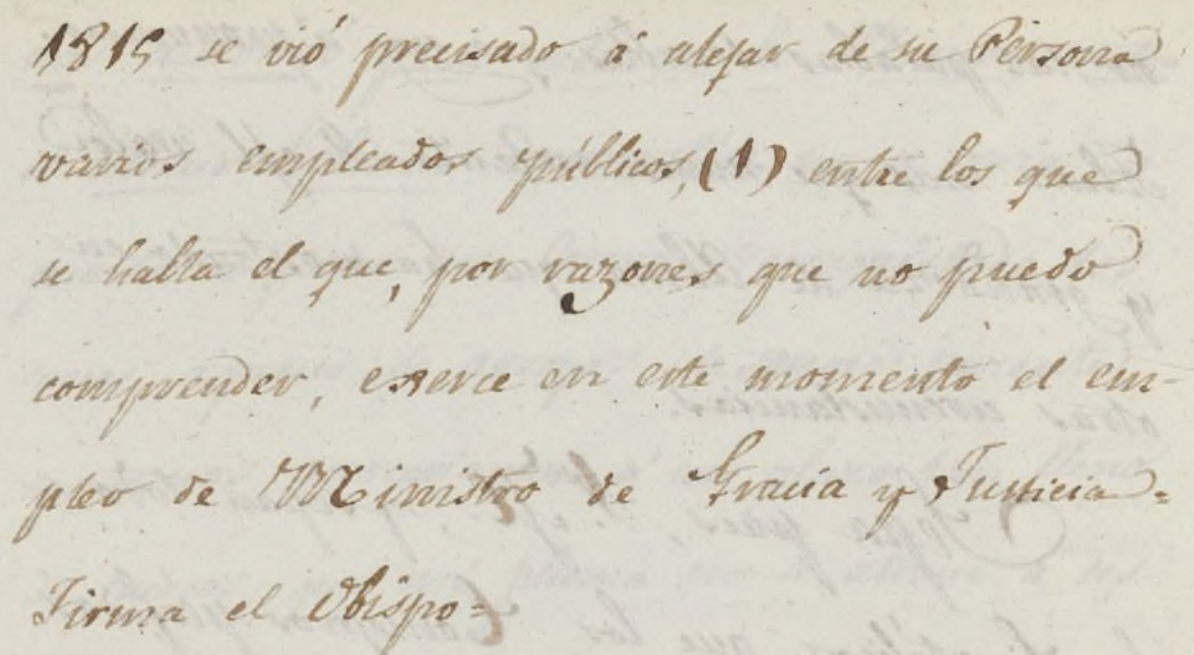 1815 se vió precisado á alejar de su Persona
varios empleados públicos, (1) entre los que
se halla el que, por razones que no puedo
comprender, exerce en este momento el em-
pleo de Ministro de Gracia y Justicia=
Firma el Obispo=